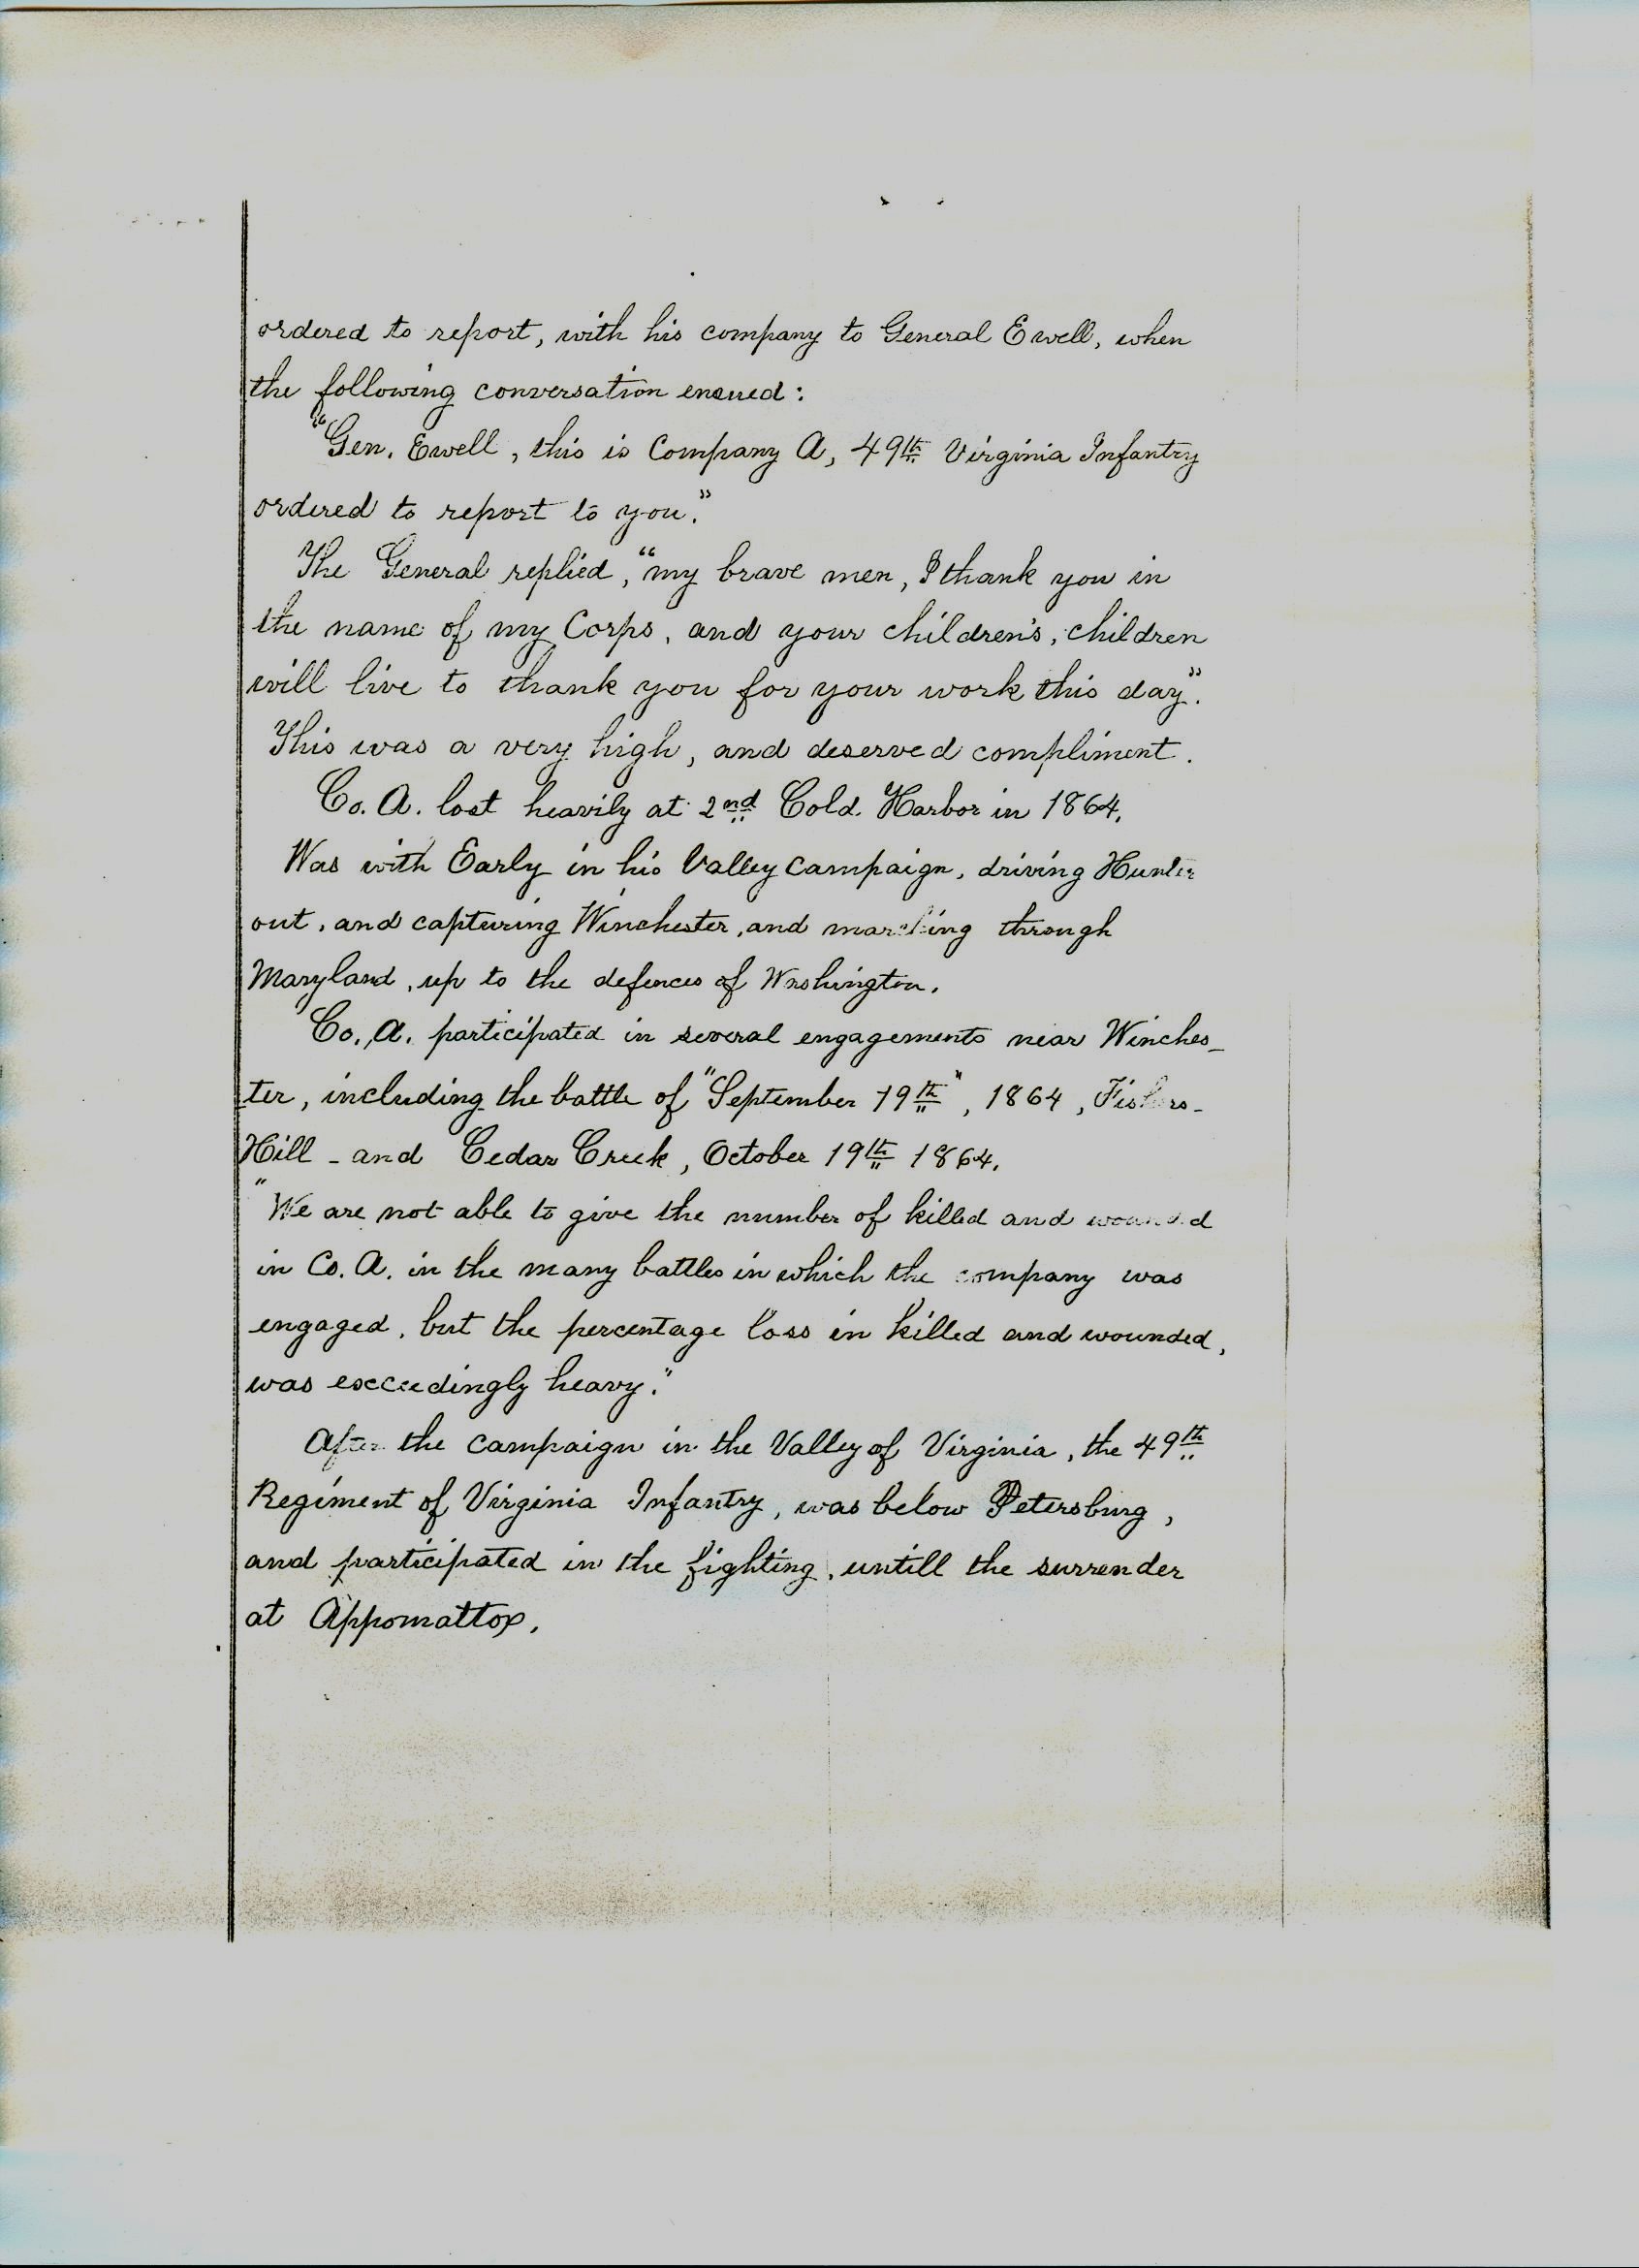 ordered to report, with his company to General Ewell, when
the following conversation ensued:
"Gen. Ewell, this is Company A, 49th Virginia Infantry
ordered to report to you."
The General replied, "my brave men, I thank you in
the name of my Corps, and your children's, children
will live to thank you for your work this day".
This was a very high, and deserved compliment.
Co. A. lost heavily at 2nd Cold Harbor in 1864.
Was with Early in his Valley campaign, driving Hunter
out, and capturing Winchester, and marching through
Maryland, up to the defences of Washington.
Co. A. participated in several engagements near Winches-
ter, including the battle of "September 19th", 1864, Fishers-
Hill - and Cedar Creek, October 19th 1864.
"We are not able to give the number of killed and wounded
in Co. A. in the many battles in which the company was
engaged, but the percentage loss in killed and wounded,
was exceedingly heavy."
After the campaign in the Valley of Virginia, the 49th
Regiment of Virginia Infantry, was below Petersburg,
and participated in the fighting, untill the surrender
at Appomattox.